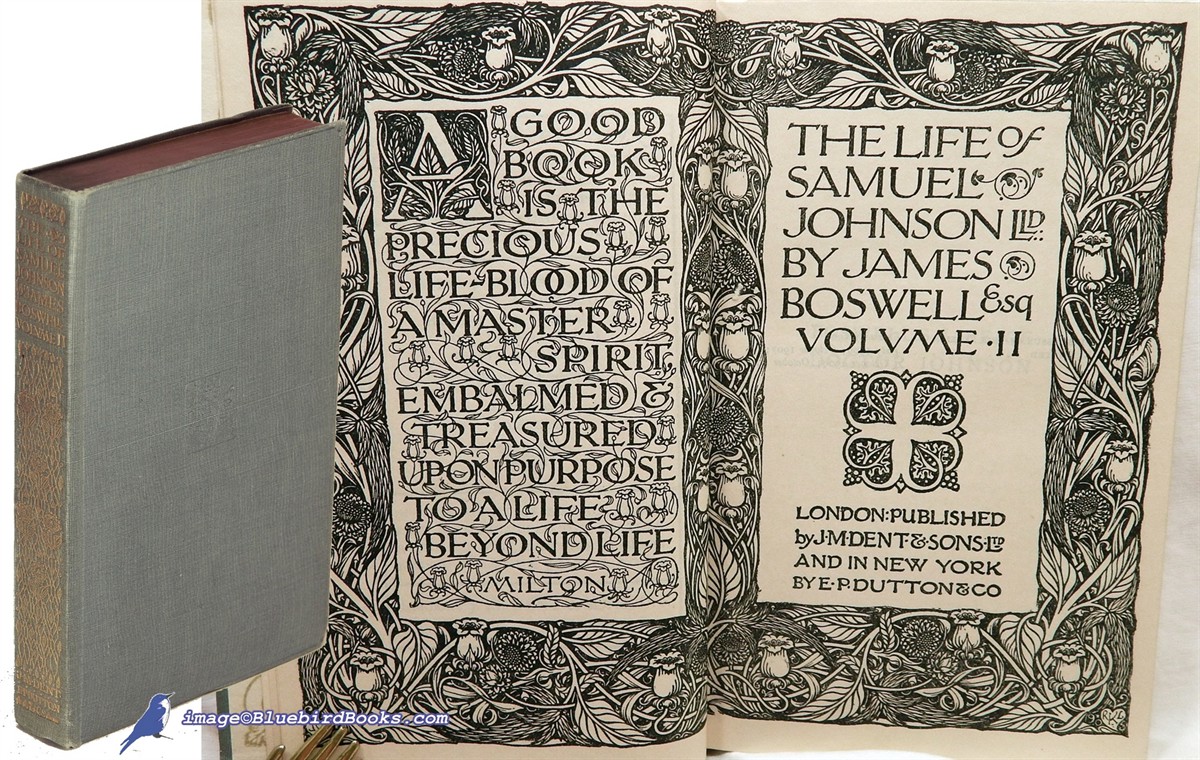 THE
LIFE OF
SAMUEL
JOHNSON
JAMES
BOSWELL
VOLVME II
A GOOD
BOOK
IS THE
PRECIOUS
LIFE-BLOOD OF
A MASTER
SPIRIT,
EMBALMED &
TREASURED
UPON PURPOSE
TO A LIFE
BEYOND LIFE
MILTON
THE LIFE of
SAMUEL
JOHNSON LLD.
BY JAMES
BOSWELL Esq
VOLVME · II
LONDON: PUBLISHED
by J·M·DENT & SONS·LTD
AND IN NEW YORK
BY E·P·DUTTON & CO
image©BluebirdBooks.com